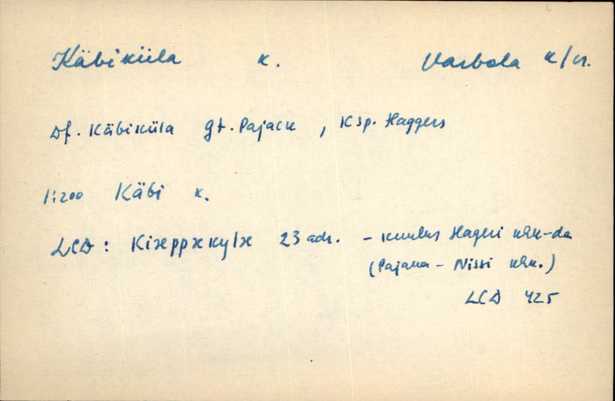 Käbiküla k. Varbola k/n.
Df. Käbiküla gt. Pajack, Ksp. Haggers
1:200 Käbi k.
LCD: Kiæppækylæ 23 adr. - kuulus Hageri khk-da
(Pajaka - Nissi khk.)
LCD 425